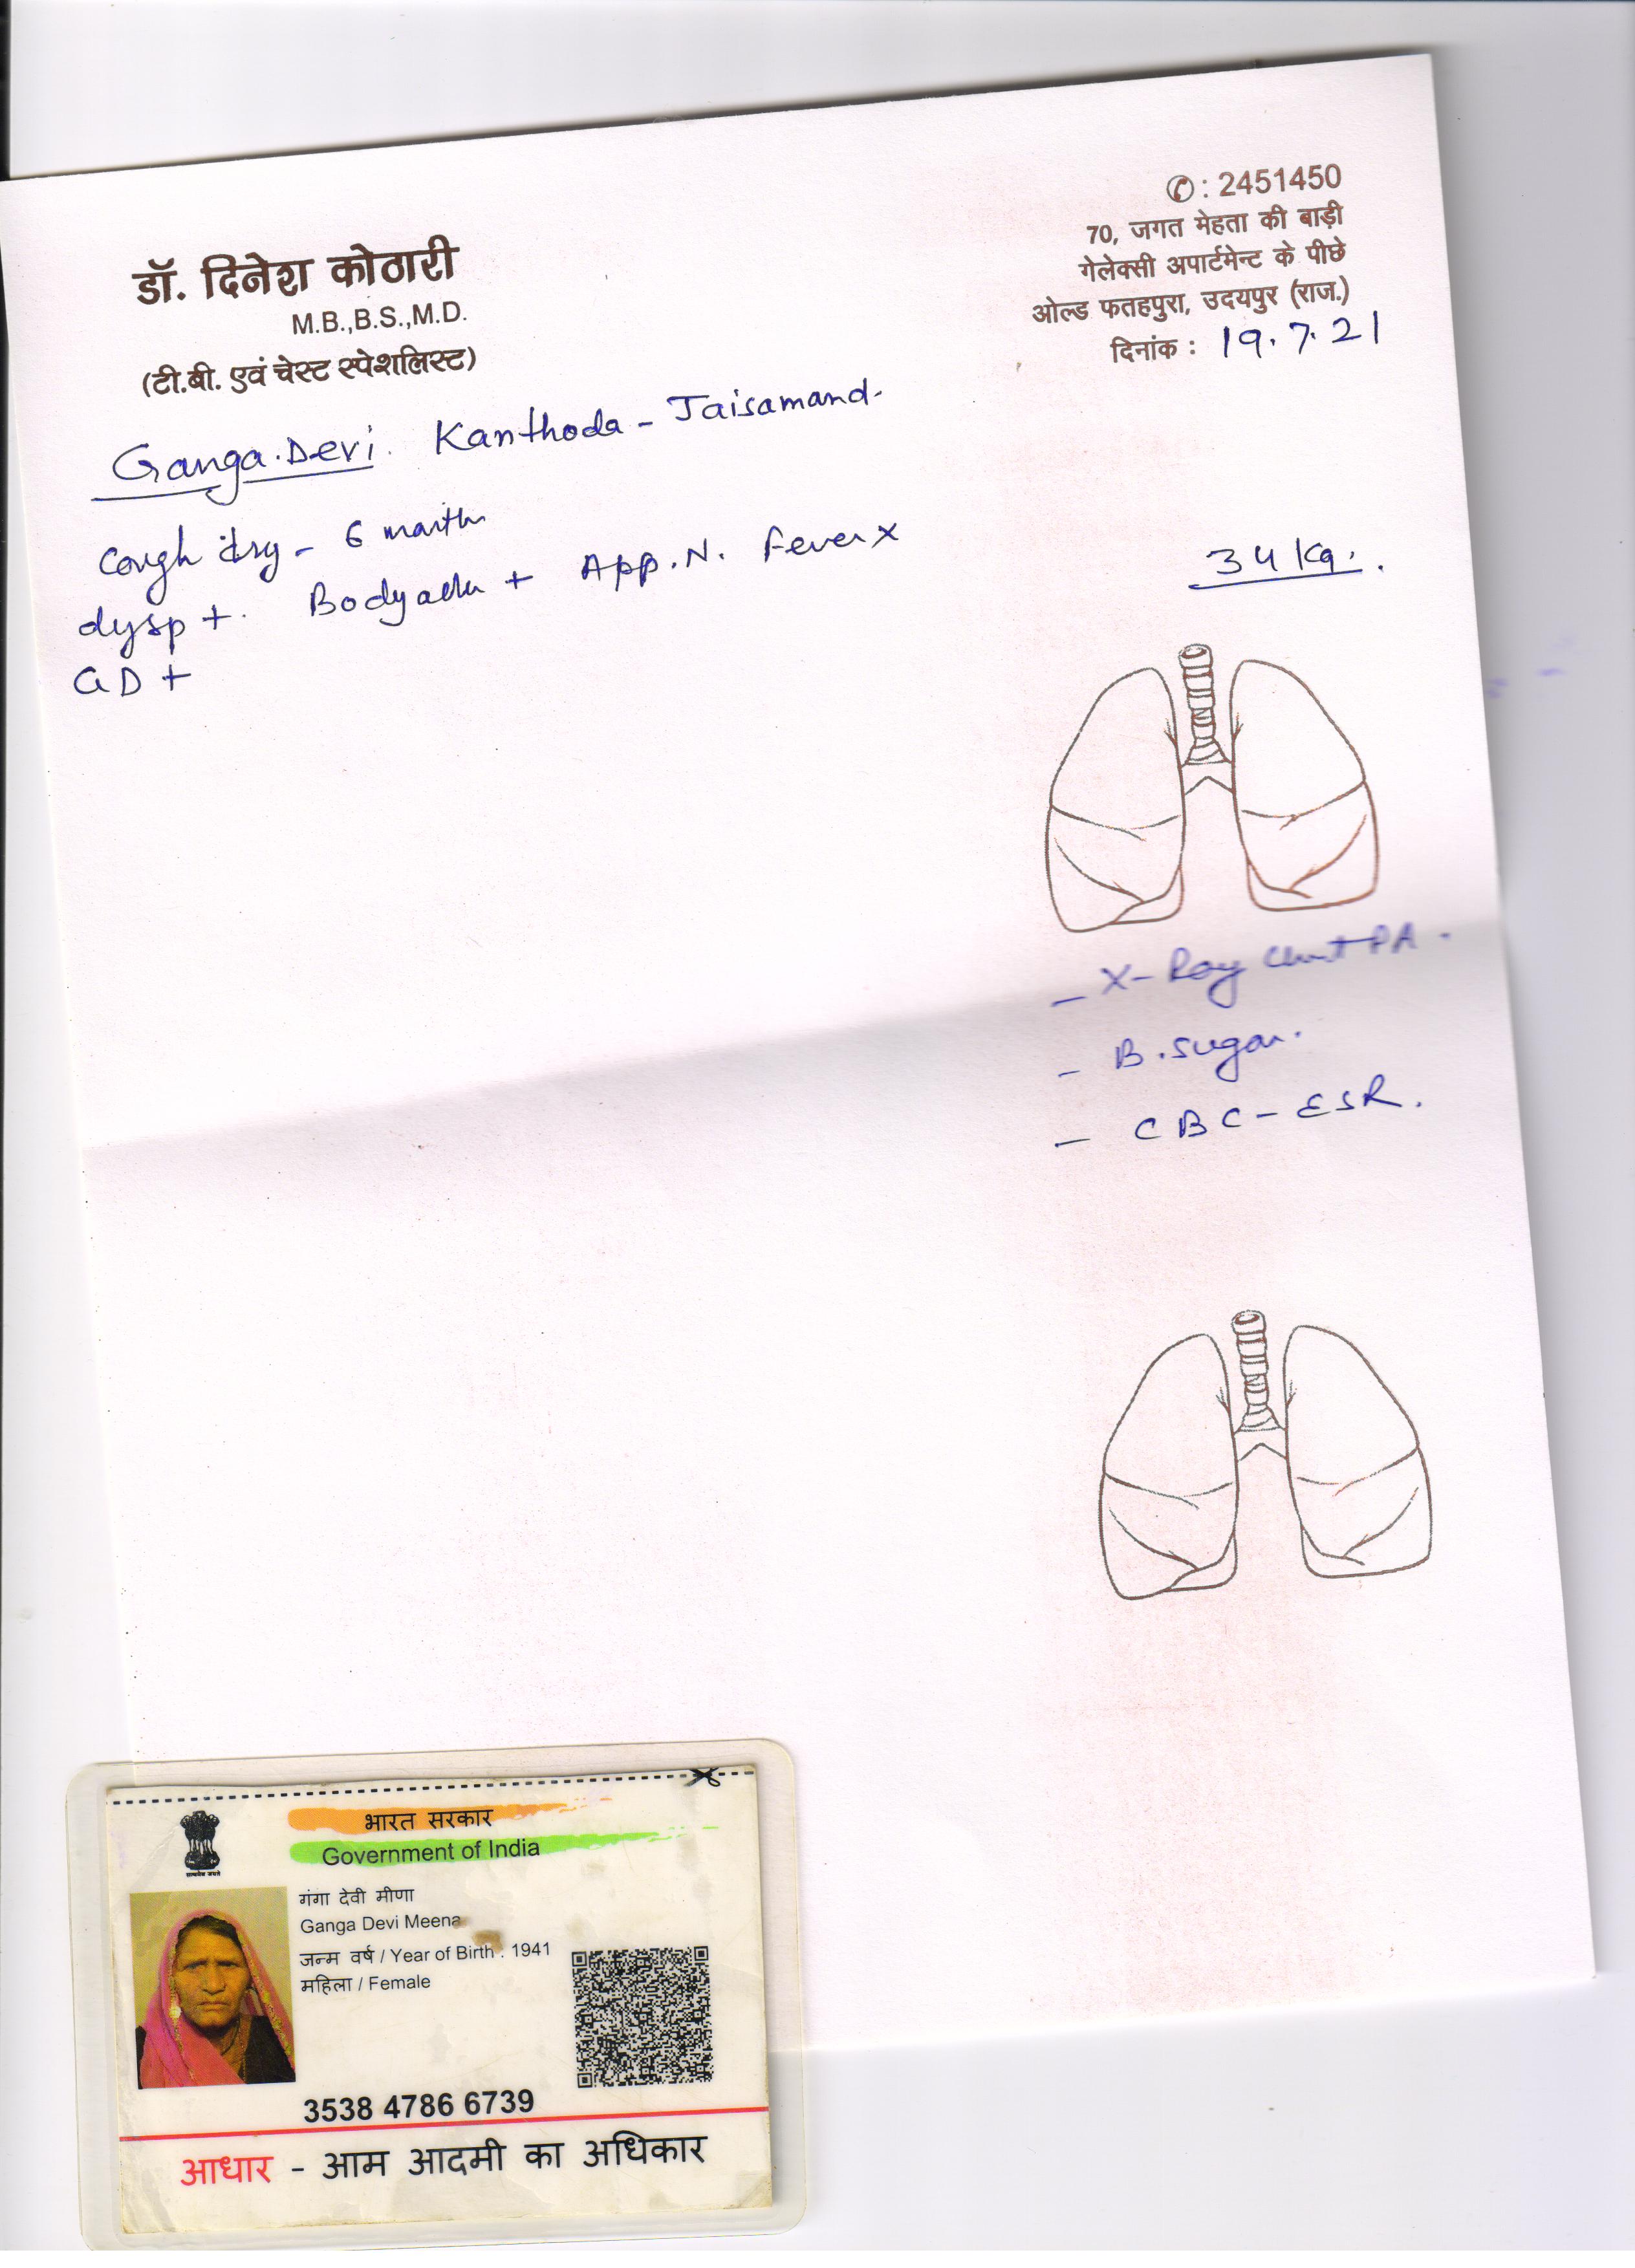 ✆: 2451450
70, जगत मेहता की बाड़ी
गेलेक्सी अपार्टमेन्ट के पीछे
ओल्ड फतहपुरा, उदयपुर (राज.)
दिनांक : 19.7.21
डॉ. दिनेश कोठारी
M.B.,B.S.,M.D.
(टी.बी. एवं चेस्ट स्पेशलिस्ट)
Ganga.Devi. Kanthoda - Jaisamand.
Cough dry - 6 month
dysp +. Bodyache + App.N. Fever x
GD +
34 Kg.
- X-Ray Chest PA.
- B.sugar.
- CBC - ESR.
भारत सरकार
Government of India
सत्यमेव जयते
गंगा देवी मीणा
Ganga Devi Meena
जन्म वर्ष / Year of Birth : 1941
महिला / Female
3538 4786 6739
आधार - आम आदमी का अधिकार